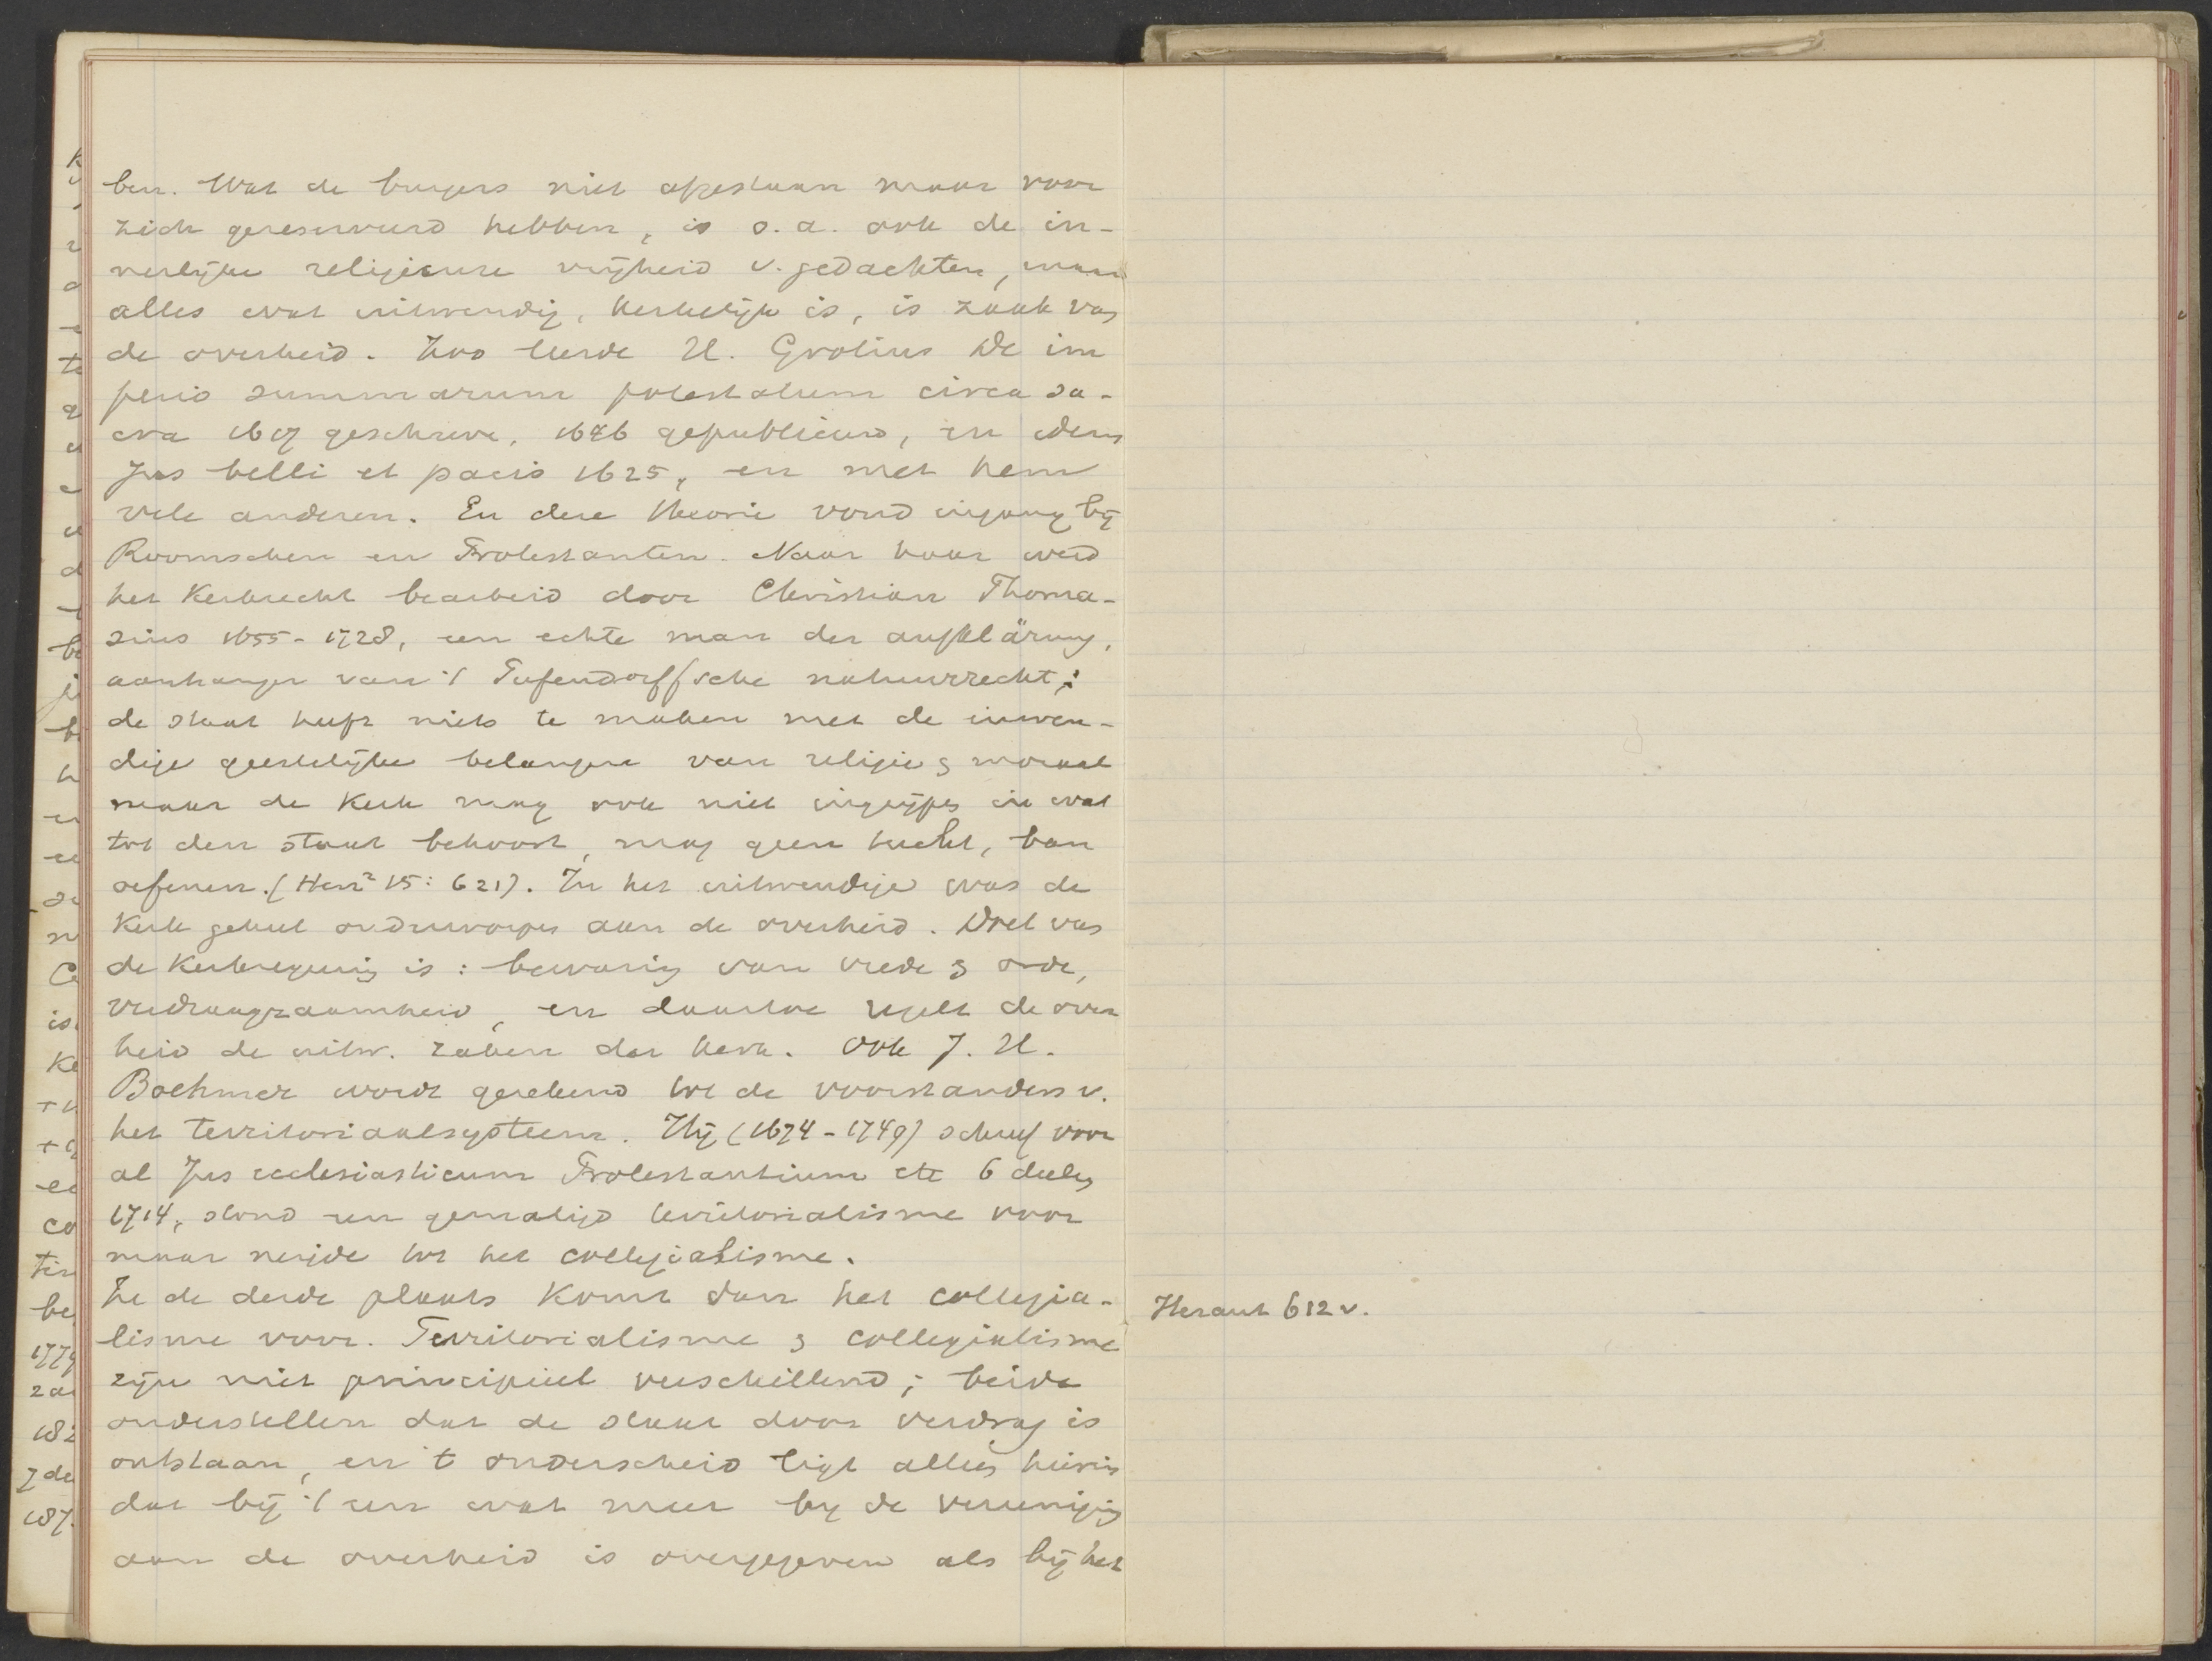 ben. Wat de burgers niet afgestaan maar voor
zich gereserveerd hebben, is o.a. ook de in-
nerlijke religieuse vrijheid v. gedachten, maar
alles wat uitwendig, kerkelijk is, is zaak van
de overheid. Zoo leerde H. Grotius De im
perio summarum potestatum circa sa-
cra 1617 geschreve, 1646 gepubliceerd, en idem
Jus belli et pacis 1625, en met hem
vele anderen. En deze theorie vond ingang bij
Roomschen en Protestanten. Naar haar werd
het Kerkrecht bearbeid door Christian Thoma-
sius 1655-1728, een echte man der aufklärung,
aanhanger van 't Pufendorffsche natuurrecht;
de staat heeft niets te maken met de inwen-
dige geestelijke belangen van religie & moraal
maar de Kerk mag ook niet ingrijpen in wat
tot den staat behoort, mag geen tucht, ban
oefenen. (Herz² 15: 621). In het uitwendige was de
Kerk geheel onderworpen aan de overheid. Doel van
de Kerkregeering is: bewaring van vrede & orde,
verdraagzaamheid, en daartoe regelt de over
heid de uitw. zaken der kerk. Ook J. H.
Boehmer wordt gerekend tot de voorstanders v.
het territoriaalsysteem. Hij (1674-1749) schreef voor
al Jus ecclesiasticum Protestantium etc 6 deelen
1714, stond een gematigd territorialisme voor
maar neigde tot het collegialisme.
Te de derde plaats komt dan het collegia-
lisme voor. Territorialisme & collegialisme
zijn niet principieel verschillend; beide
onderstellen dat de staat door verdrag is
ontstaan, en 't onderscheid ligt alleen hierin
dat bij 't een wat meer bij de vereeniging
aan de overheid is overgegeven als bij het
Heraut 612 v.